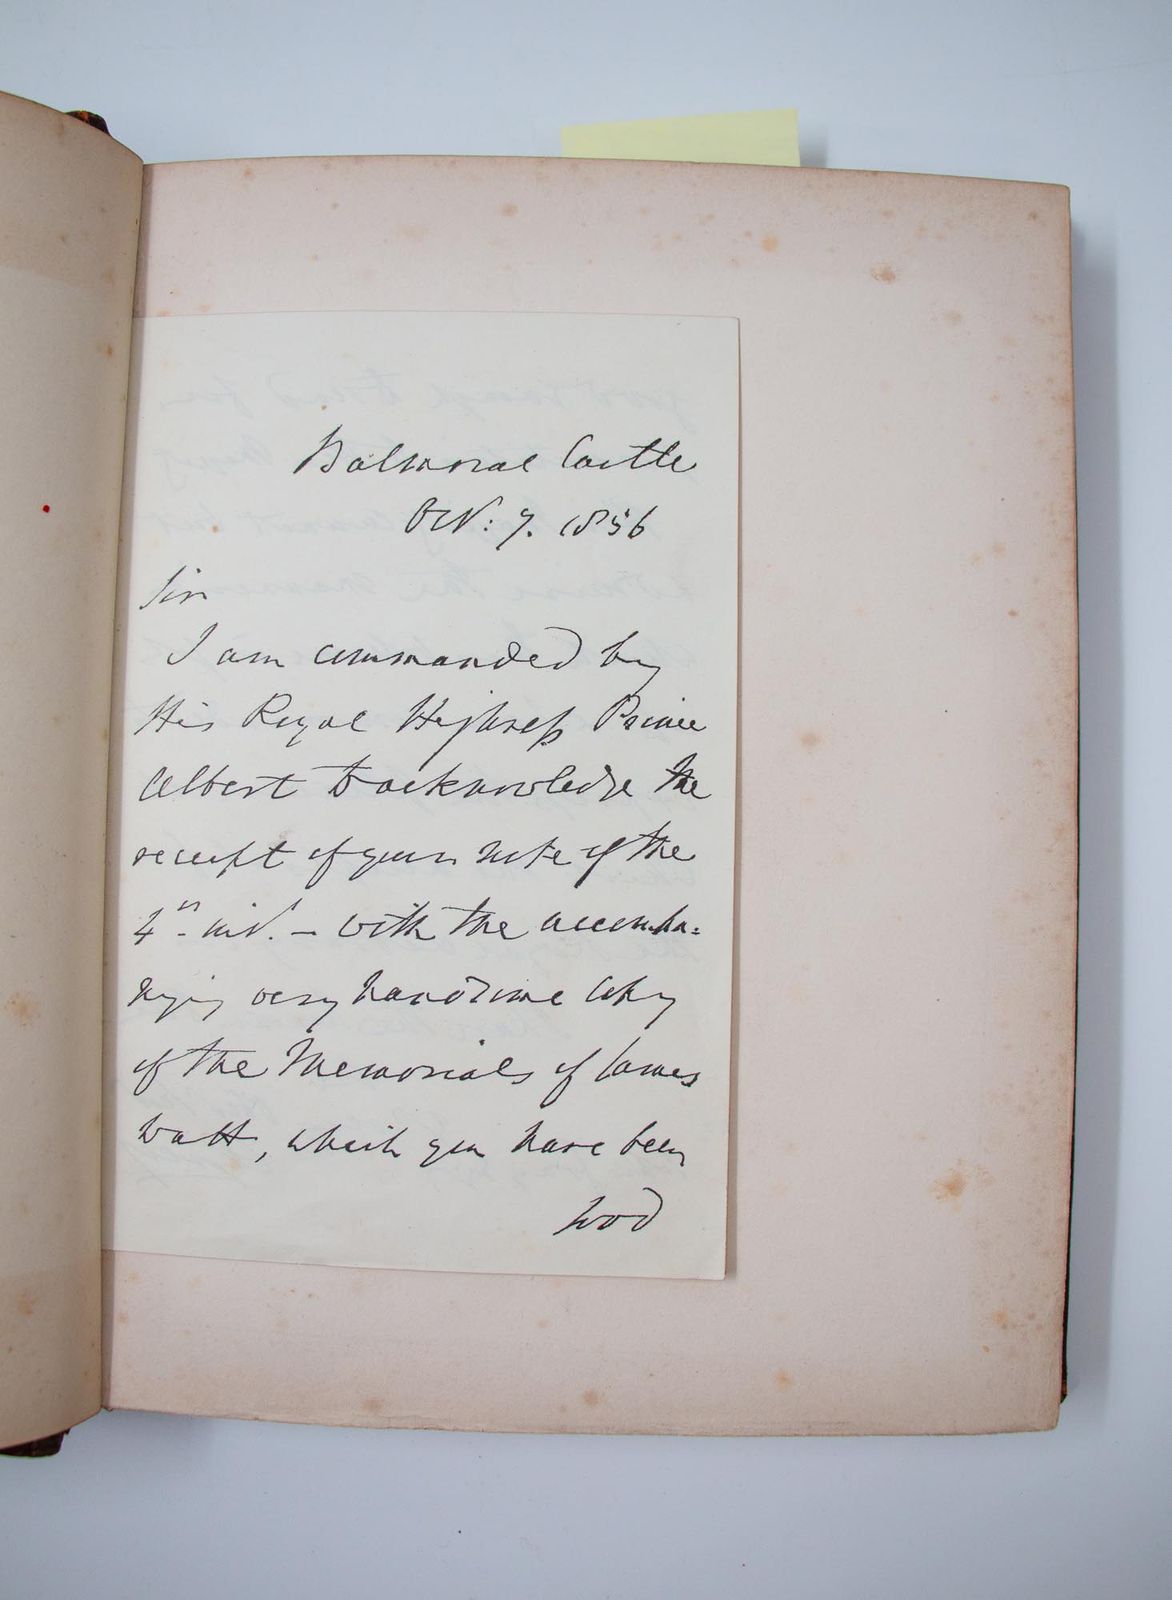 Balmoral Castle
Oct: 7. 1856
Sir
I am commanded by
His Royal Highness Prince
Albert to acknowledge the
receipt of your note of the
4th inst. – with the accompa=
nying very handsome Copy
of the Memorials of James
Watt, which you have been
good